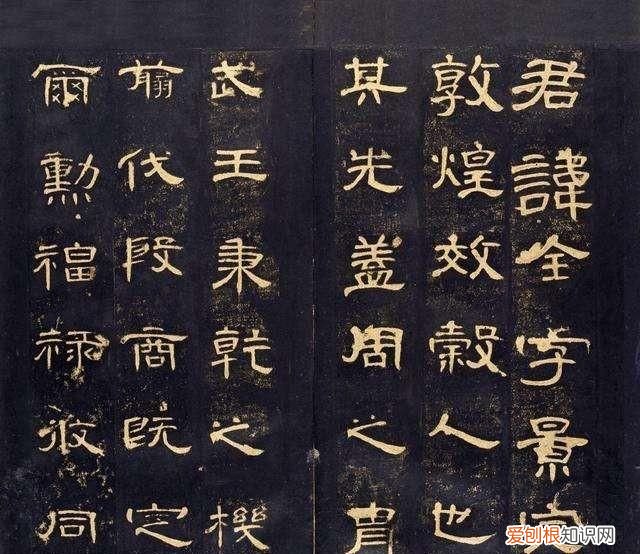 君諱全字景完
敦煌效穀人也
其先蓋周之胄
武王秉乾之機
翦伐殷商既定
爾勳福祿攸同
爱刨根知识网
www.baogenzhishi.com